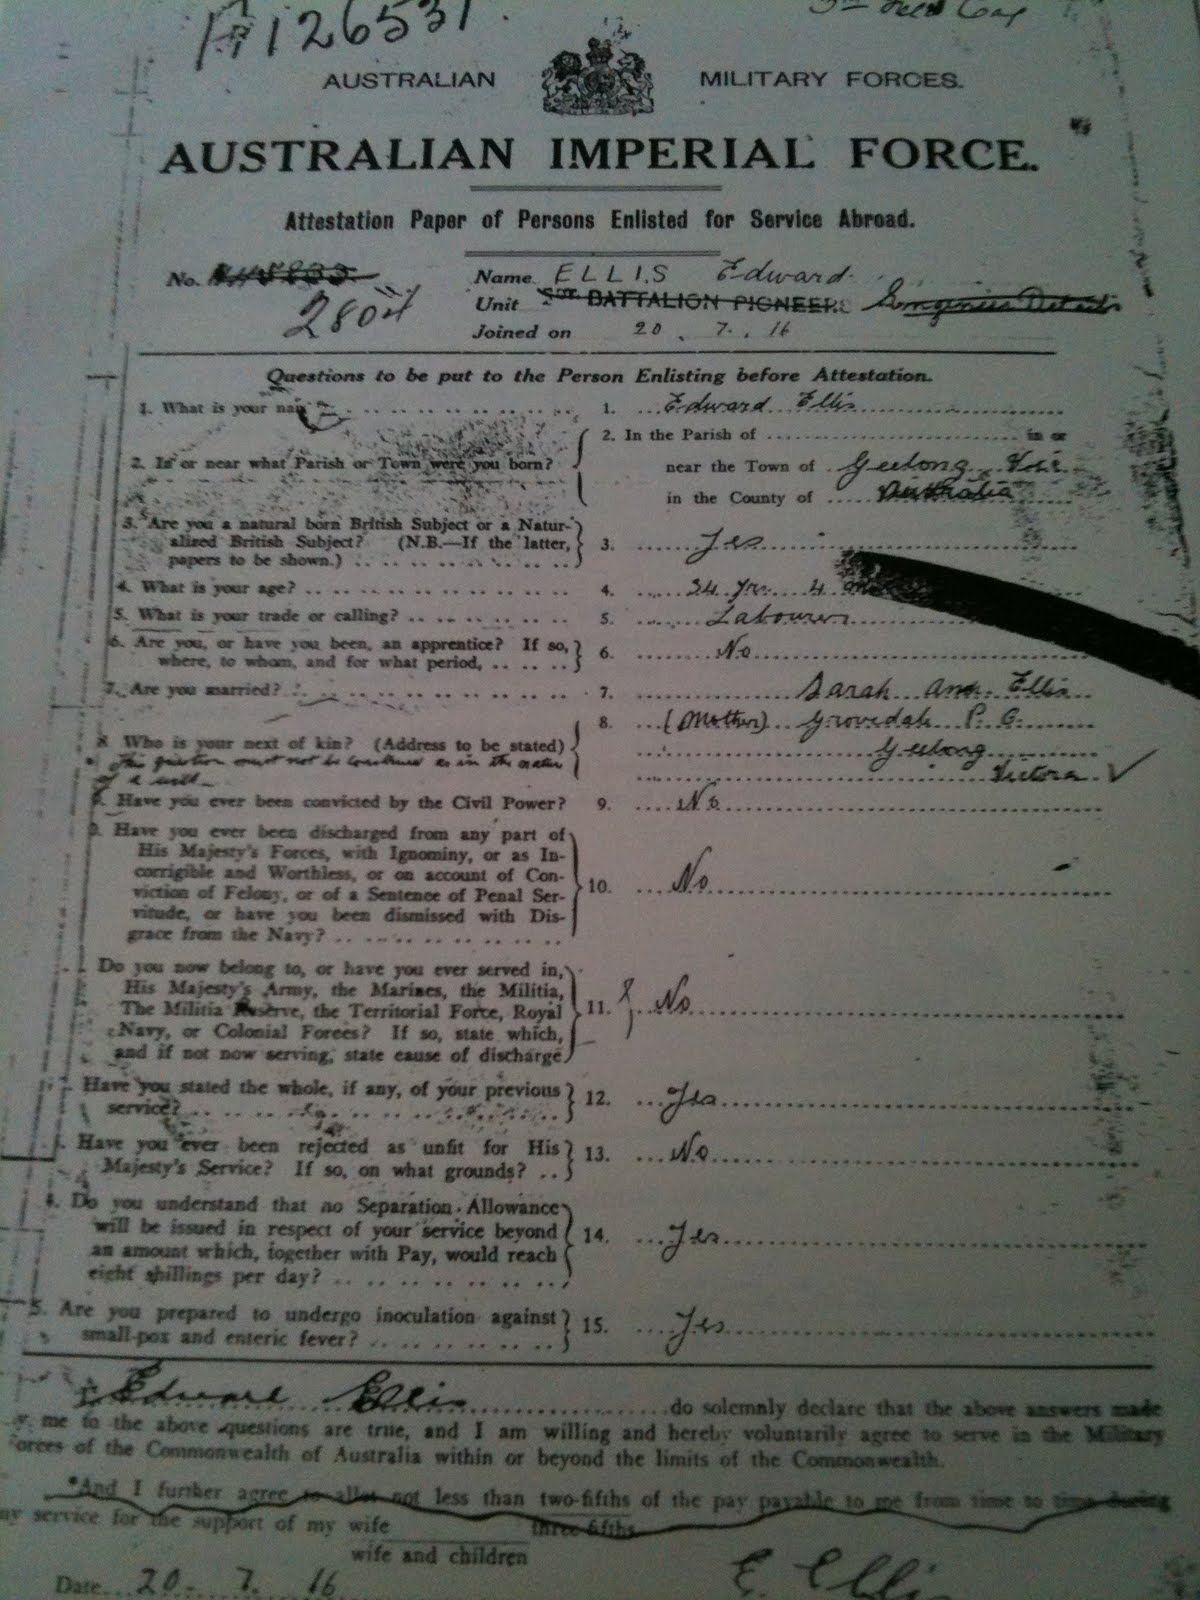 126531
AUSTRALIAN MILITARY FORCES.
AUSTRALIAN IMPERIAL FORCE.
Attestation Paper of Persons Enlisted for Service Abroad.
No.
2804
Name ELLIS Edward
Unit BATTALION PIONEERS
Joined on 20 . 7 . 16
Questions to be put to the Person Enlisting before Attestation.
1. What is your
1. Edward Ellis
2. In or near what Parish or Town were you born?
2. In the Parish of in or
near the Town of Geelong Vic
in the County of Australia
3. Are you a natural born British Subject or a Natur-
alized British Subject? (N.B.—If the latter,
papers to be shown.)
3. Yes
4. What is your age?
4. 34 yrs 4
5. What is your trade or calling?
5. Labourer
6. Are you, or have you been, an apprentice? If so,
where, to whom, and for what period,
6. No
7. Are you married?
7. Sarah Ann Ellis
8. Who is your next of kin? (Address to be stated)
This question must not be construed as in the nature
of a will
8. (Mother) Grovedale P. O.
Geelong
Victoria
9. Have you ever been convicted by the Civil Power?
9. No
Have you ever been discharged from any part of
His Majesty's Forces, with Ignominy, or as In-
corrigible and Worthless, or on account of Con-
viction of Felony, or of a Sentence of Penal Ser-
vitude, or have you been dismissed with Dis-
grace from the Navy?
10. No
Do you now belong to, or have you ever served in,
His Majesty's Army, the Marines, the Militia,
The Militia Reserve, the Territorial Force, Royal
Navy, or Colonial Forces? If so, state which,
and if not now serving, state cause of discharge
11. No
Have you stated the whole, if any, of your previous
service?
12. Yes
Have you ever been rejected as unfit for His
Majesty's Service? If so, on what grounds?
13. No
Do you understand that no Separation Allowance
will be issued in respect of your service beyond
an amount which, together with Pay, would reach
eight shillings per day?
14. Yes
5. Are you prepared to undergo inoculation against
small-pox and enteric fever?
15. Yes
Edward Ellis do solemnly declare that the above answers made
me to the above questions are true, and I am willing and hereby voluntarily agree to serve in the Military
Forces of the Commonwealth of Australia within or beyond the limits of the Commonwealth.
*And I further agree to allot not less than two-fifths of the pay payable to me from time to time during
three-fifths
my service for the support of my wife
wife and children
Date 20 . 7 . 16
E. Ellis